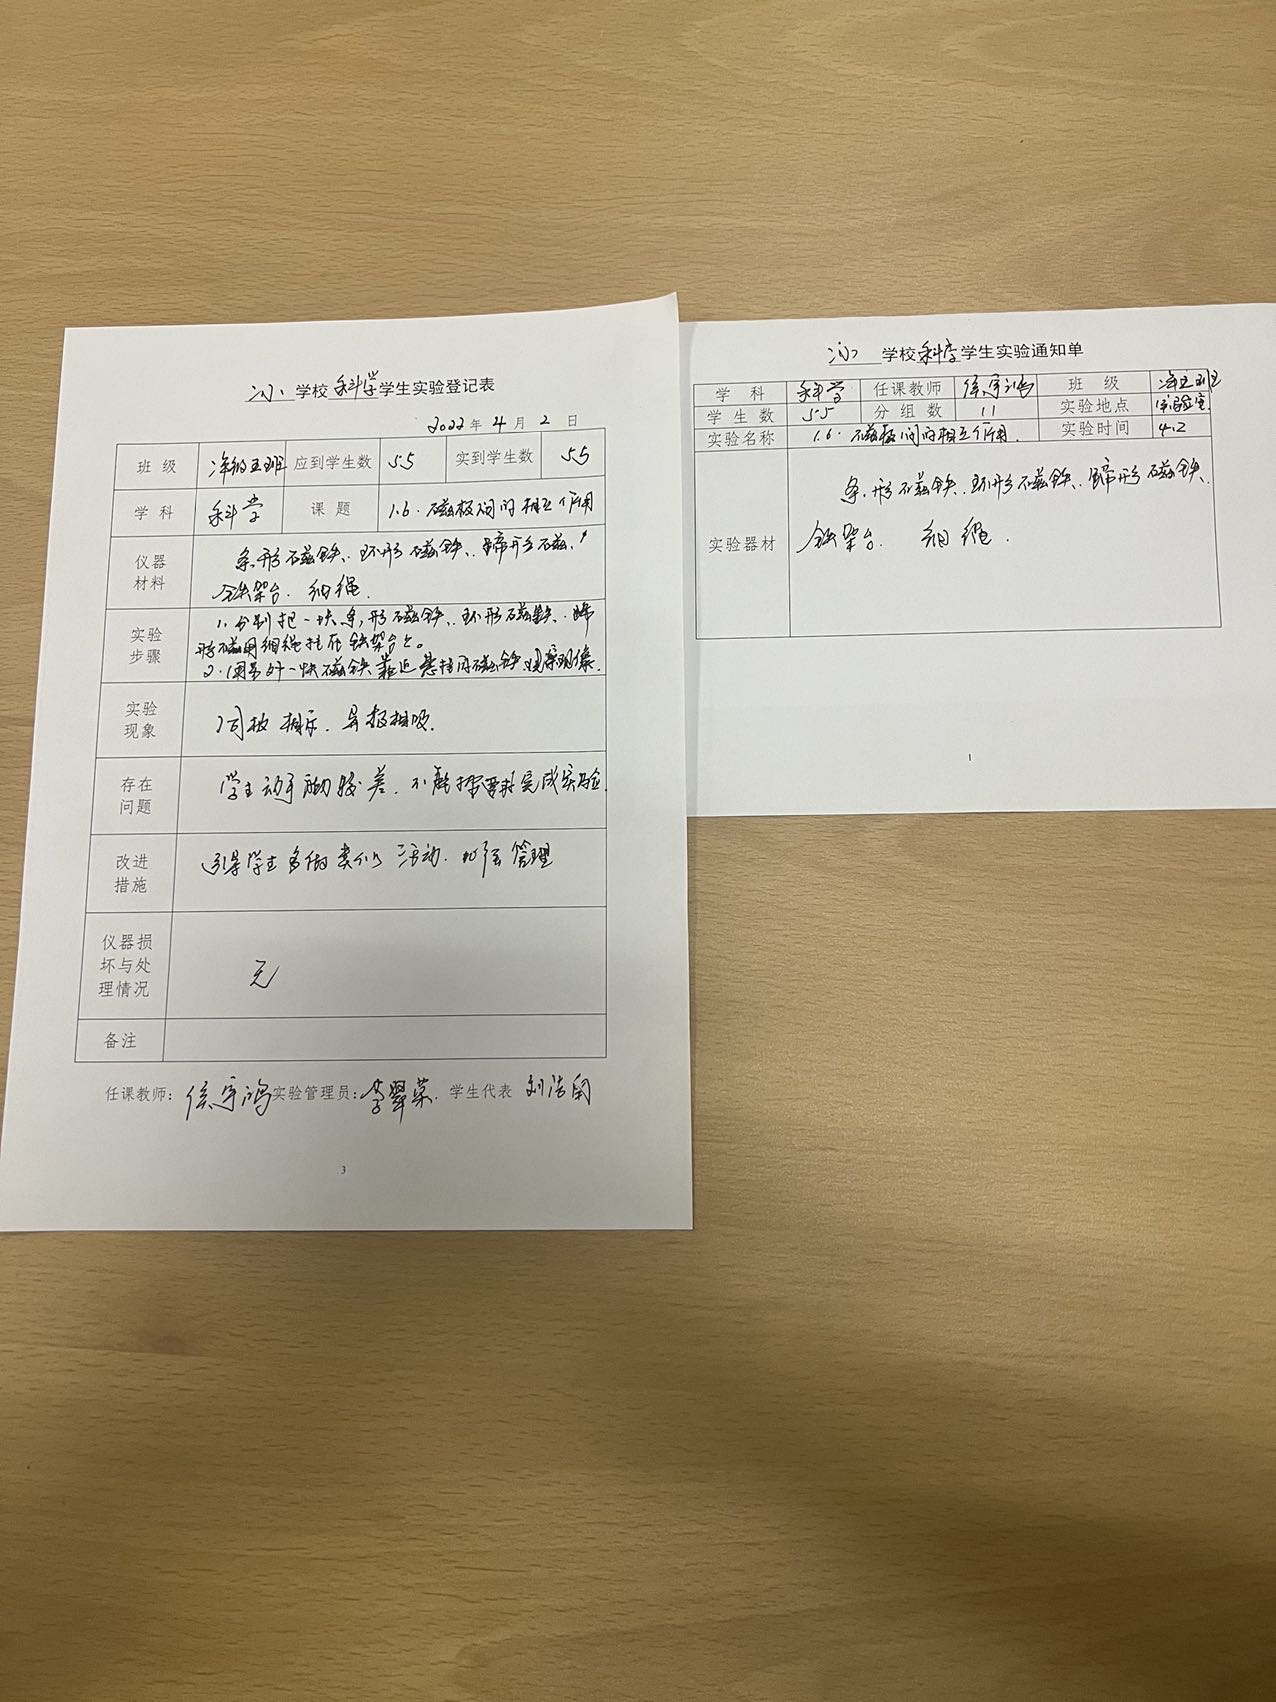 学校科学学生实验登记表
2022年4月2日
班级 五班 应到学生数 55 实到学生数 55
学科 科学 课题 1.6.磁极间的相互作用
仪器材料 条形磁铁、环形磁铁、蹄形磁、
铁架台、细绳.
实验步骤 1.分别把一块条形磁铁、环形磁铁、蹄
形磁用细绳挂在铁架台上。
2.用另外一块磁铁靠近悬挂的磁铁,观察现象.
实验现象 同极相斥.异极相吸.
存在问题 学生动手能力较差.不能按要求完成实验.
改进措施 引导学生多做类似活动.加强管理
仪器损坏与处理情况 无
备注
任课教师: 侯宇鸿 实验管理员: 李翠荣. 学生代表 刘浩
3
学校科学学生实验通知单
学科 科学 任课教师 侯宇鸿 班级 五班
学生数 55 分组数 11 实验地点 实验室
实验名称 1.6.磁极间的相互作用. 实验时间 4.2
实验器材 条形磁铁、环形磁铁、蹄形磁铁、
铁架台、细绳.
1